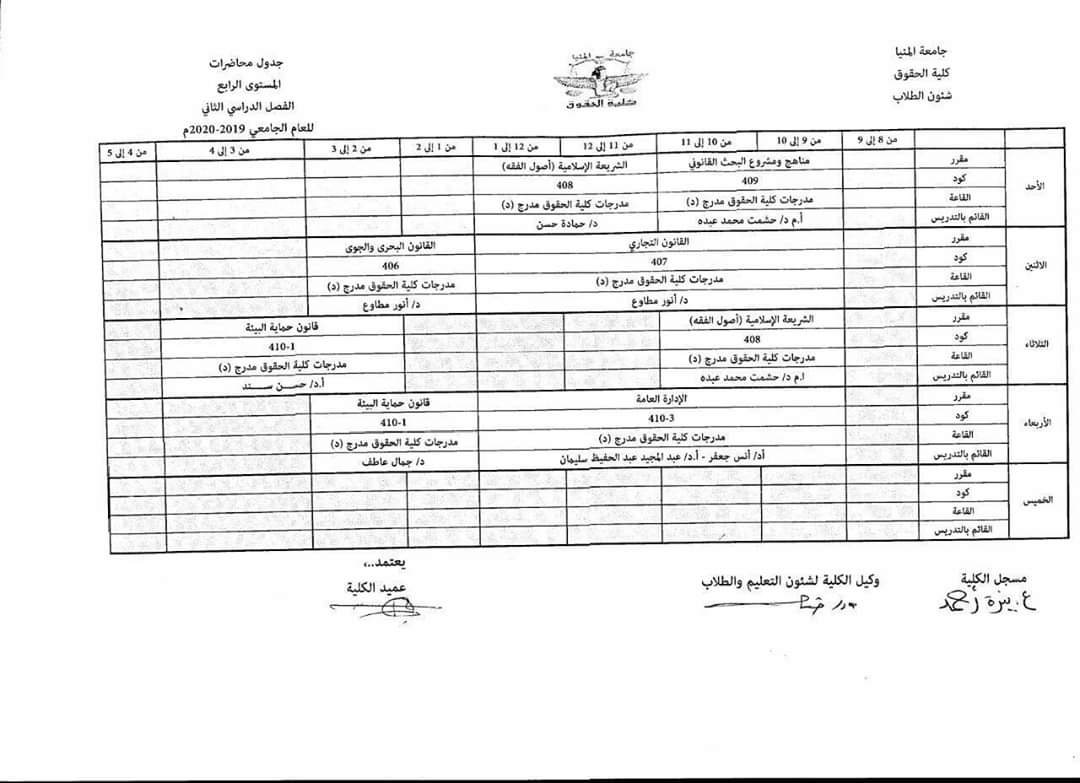 جامعة المنيا
كلية الحقوق
شئون الطلاب
جامعة المنيا
كلية الحقوق
جدول محاضرات
المستوى الرابع
الفصل الدراسي الثاني
للعام الجامعي 2019-2020م
من 8 إلى 9 من 9 إلى 10 من 10 إلى 11 من 11 إلى 12 من 12 إلى 1 من 1 إلى 2 من 2 إلى 3 من 3 إلى 4 من 4 إلى 5
الأحد
مقرر مناهج ومشروع البحث القانوني الشريعة الإسلامية (أصول الفقه)
كود 409 408
القاعة مدرجات كلية الحقوق مدرج (د) مدرجات كلية الحقوق مدرج (د)
القائم بالتدريس أ.م د/ حشمت محمد عبده د/ حمادة حسن
الاثنين
مقرر القانون التجاري القانون البحرى والجوى
كود 407 406
القاعة مدرجات كلية الحقوق مدرج (د) مدرجات كلية الحقوق مدرج (د)
القائم بالتدريس د/ أنور مطاوع د/ أنور مطاوع
الثلاثاء
مقرر الشريعة الإسلامية (أصول الفقه) قانون حماية البيئة
كود 408 410-1
القاعة مدرجات كلية الحقوق مدرج (د) مدرجات كلية الحقوق مدرج (د)
القائم بالتدريس ا.م د/ حشمت محمد عبده أ.د/ حسن سند
الأربعاء
مقرر الإدارة العامة قانون حماية البيئة
كود 410-3 410-1
القاعة مدرجات كلية الحقوق مدرج (د) مدرجات كلية الحقوق مدرج (د)
القائم بالتدريس أد/ أنس جعفر - أ.د/ عبد المجيد عبد الحفيظ سليمان د/ جمال عاطف
الخميس
مقرر
كود
القاعة
القائم بالتدريس
مسجل الكلية
وكيل الكلية لشئون التعليم والطلاب
يعتمد..،
عميد الكلية